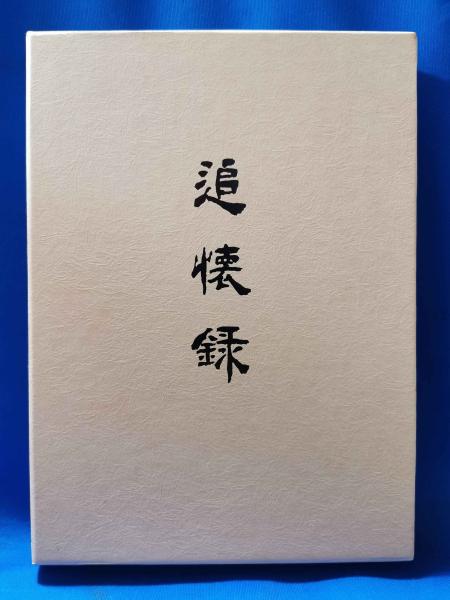 追懐録